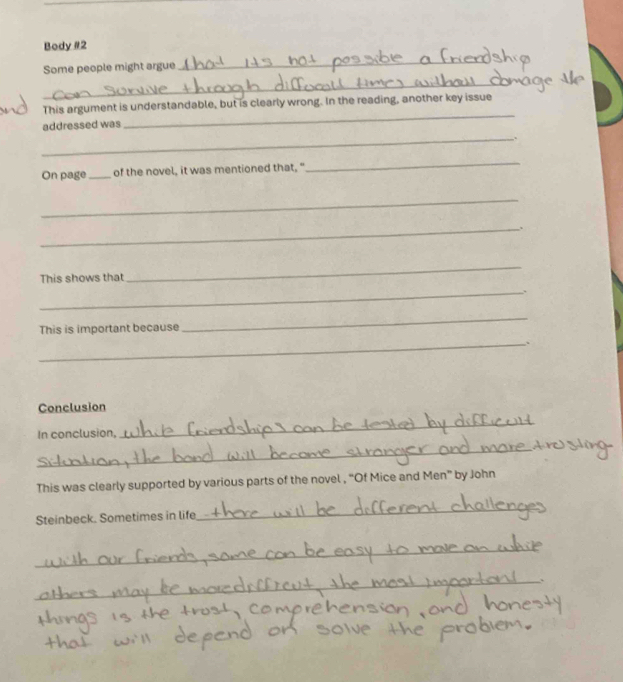 Body #2
Some people might argue that its not possible a friendship
can survive through difficult times without damage the
end
This argument is understandable, but is clearly wrong. In the reading, another key issue
addressed was
On page ____ of the novel, it was mentioned that, "
This shows that
This is important because
Conclusion
In conclusion, while friendships can be tested by difficult
situation, the bond will become stronger and more trusting.
This was clearly supported by various parts of the novel, "Of Mice and Men" by John
Steinbeck. Sometimes in life there will be different challenges
with our friends, some can be easy to move on while
others may be more the most important
things is the trust, comprehension, and honesty
that will depend on solve the problem.